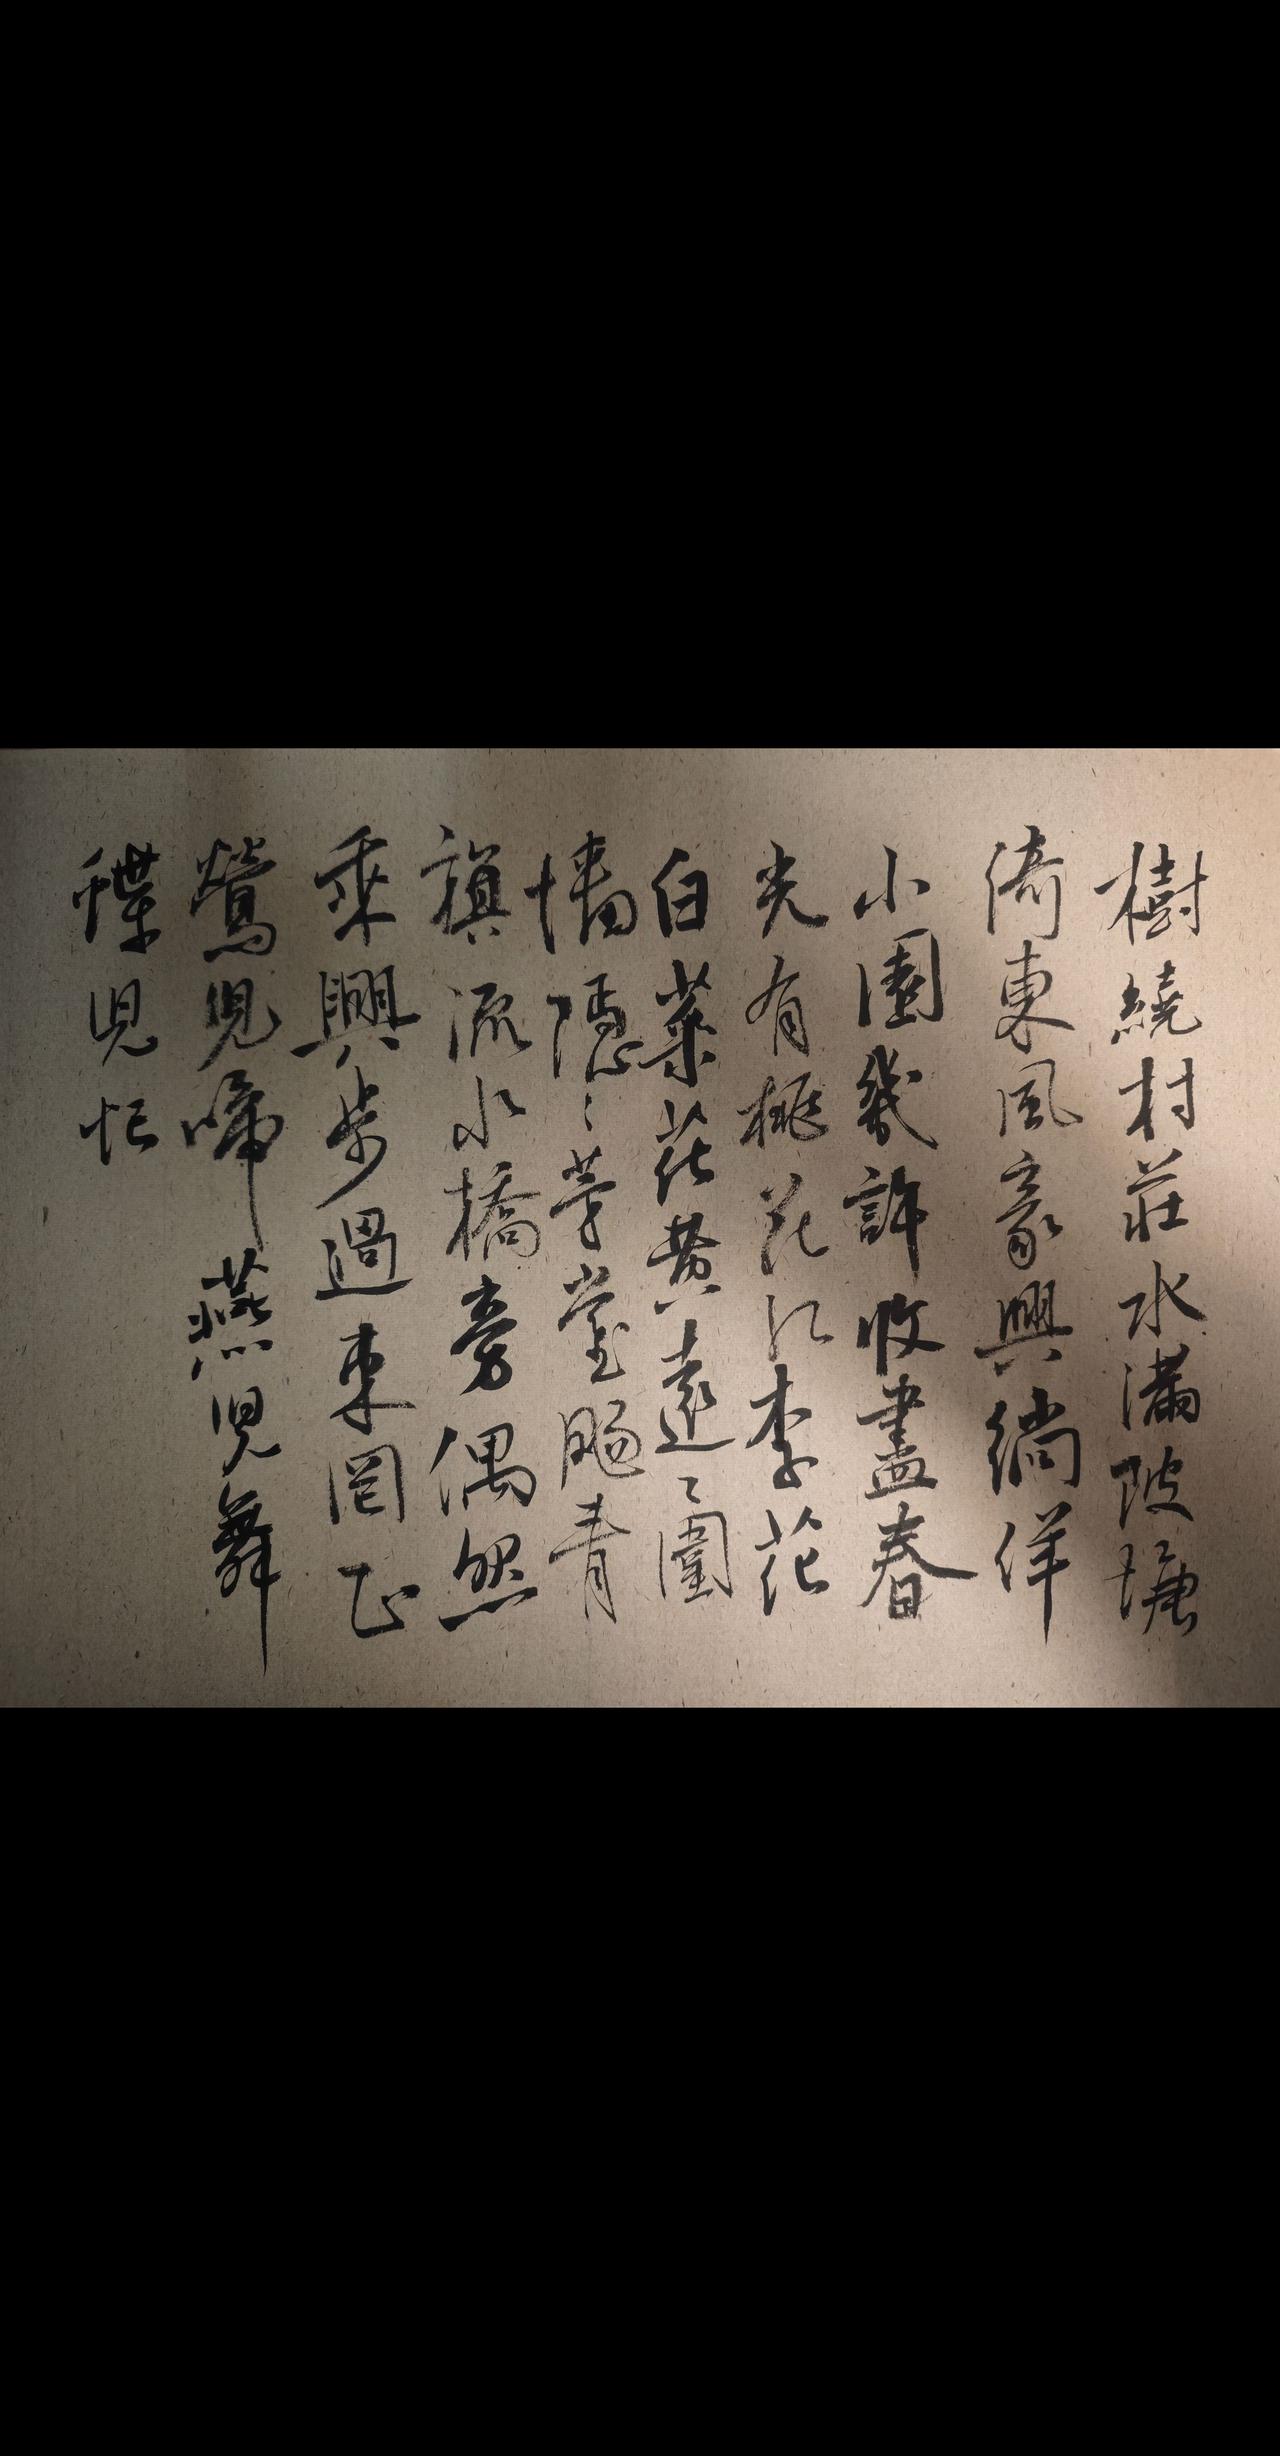 樹繞村莊水滿陂塘
倚東風豪興徜徉
小園幾許收盡春
光有桃花紅李花
白菜花黃遠遠圍
墻隱隱茅堂颺青
旗流水橋旁偶然
乘興步過東岡正
鶯兒啼燕兒舞
蝶兒忙